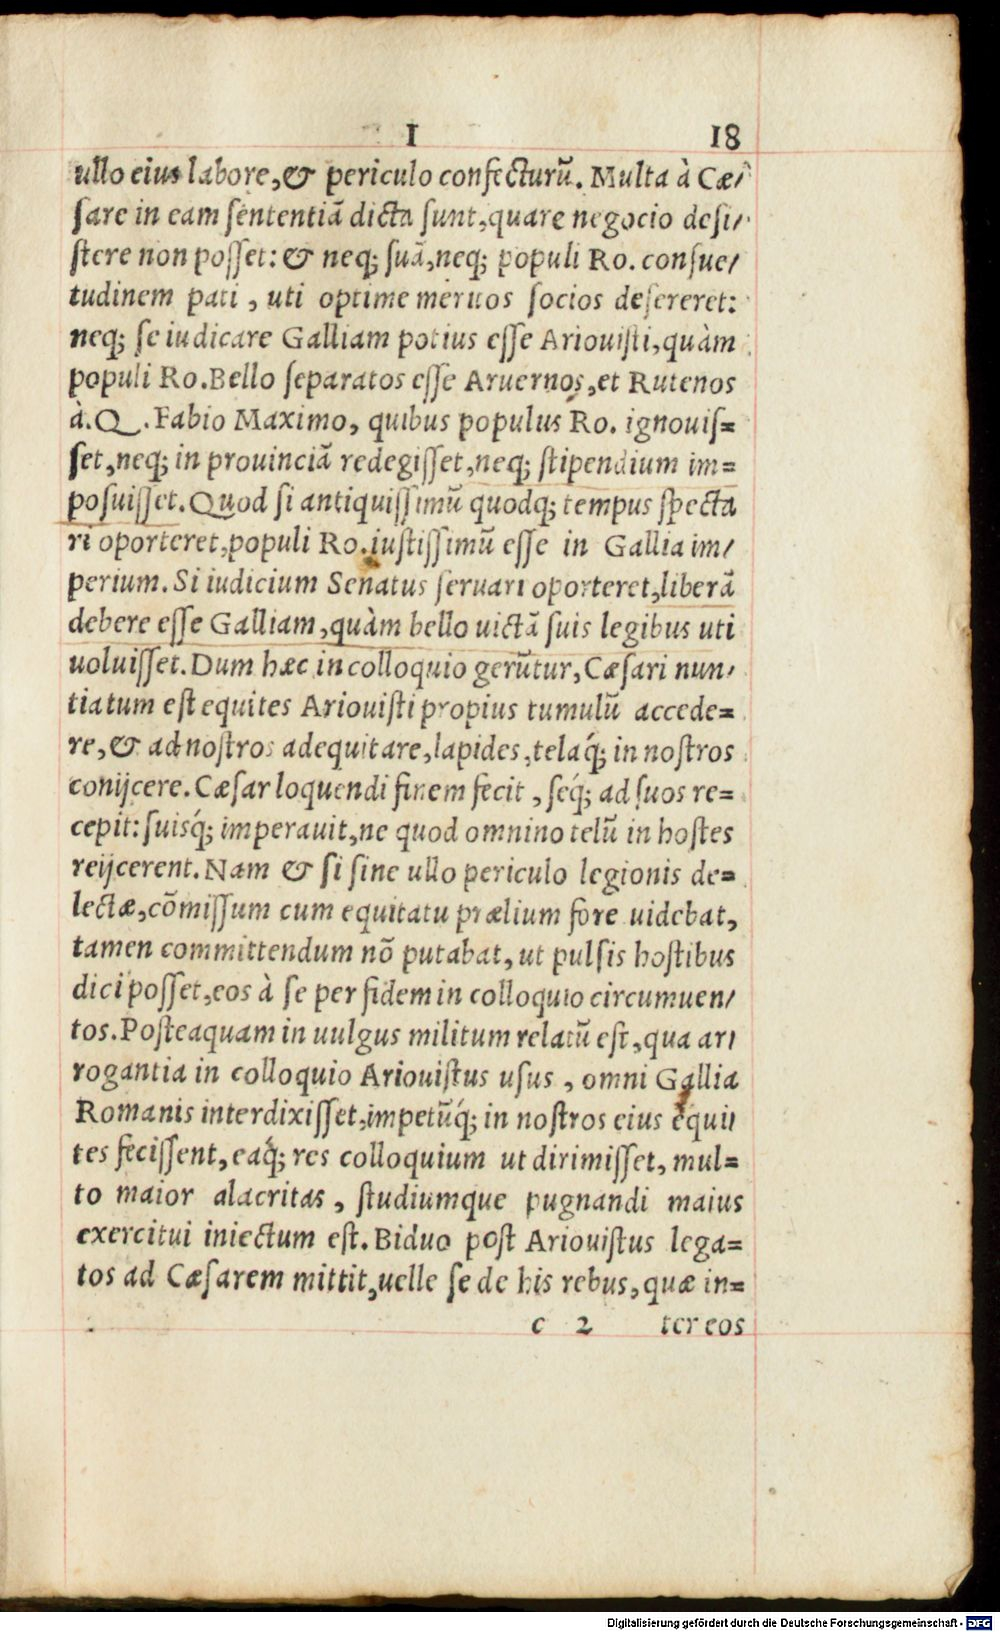 I 18
ullo eius labore, & periculo confecturū. Multa à Cæ/
ſare in eam ſententiā dicta ſunt, quare negocio deſi/
ſtere non poſſet: & neq; ſuā, neq; populi Ro. conſue/
tudinem pati, uti optime meritos ſocios deſereret:
neq; ſe iudicare Galliam potius eſſe Ariouiſti, quàm
populi Ro. Bello ſeparatos eſſe Aruernos, et Rutenos
à. Q. Fabio Maximo, quibus populus Ro. ignouiſ=
ſet, neq; in prouinciā redegiſſet, neq; ſtipendium im=
poſuiſſet. Quod ſi antiquiſſimū quodq; tempus ſpecta
ri oporteret, populi Ro. iuſtiſſimū eſſe in Gallia im/
perium. Si iudicium Senatus ſeruari oporteret, liberā
debere eſſe Galliam, quàm bello uictā ſuis legibus uti
uoluiſſet. Dum hæc in colloquio gerūtur, Cæſari nun/
tiatum eſt equites Ariouiſti propius tumulū accede=
re, & ad noſtros adequitare, lapides, telaq́; in noſtros
conijcere. Cæſar loquendi finem fecit, ſéq́; ad ſuos re=
cepit: ſuisq́; imperauit, ne quod omnino telū in hoſtes
reijcerent. Nam & ſi ſine ullo periculo legionis de=
lectæ, cōmiſſum cum equitatu prælium fore uidebat,
tamen committendum nō putabat, ut pulſis hoſtibus
dici poſſet, eos à ſe per fidem in colloquio circumuen/
tos. Poſteaquam in uulgus militum relatū eſt, qua ar/
rogantia in colloquio Ariouiſtus uſus, omni Gallia
Romanis interdixiſſet, impetūq́; in noſtros eius equi/
tes feciſſent, eaq́; res colloquium ut dirimiſſet, mul=
to maior alacritas, ſtudiumque pugnandi maius
exercitui iniectum eſt. Biduo poſt Ariouiſtus lega=
tos ad Cæſarem mittit, uelle ſe de his rebus, quæ in=
c 2 ter eos
Digitalisierung gefördert durch die Deutsche Forschungsgemeinschaft - DFG